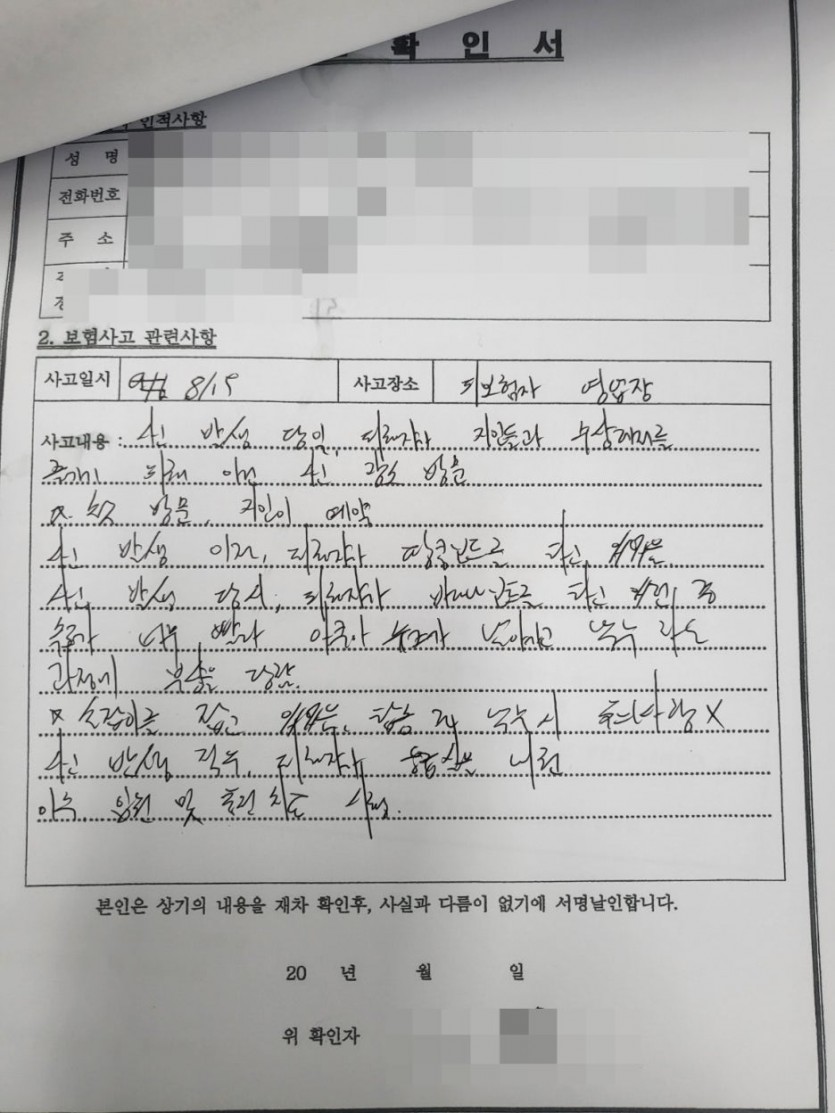 확 인 서
인적사항
성 명
전화번호
주 소
2. 보험사고 관련사항
사고일시 8/15 사고장소 피보험자 영업장
사고내용 : 사고 발생 당일, 피해자가 지인들과 수상레저를
즐기기 위해 사고 장소 방문
방문, 지인이 예약
사고 발생 이전, 피해자가 땅콩보트를 타고 있었음
사고 발생 당시, 피해자가 바나나보트를 타고 있던 중
속도가 너무 빨라 날아가고 낙수
과정에 부상을 당함.
* 손잡이를 잡고 있었음, 탑승 전 낙수 시 주의사항 X
사고 발생 직후, 피해자가 응급실을 내원
이후, 입원 및 통원 치료 시행.
본인은 상기의 내용을 재차 확인후, 사실과 다름이 없기에 서명날인합니다.
20 년 월 일
위 확인자